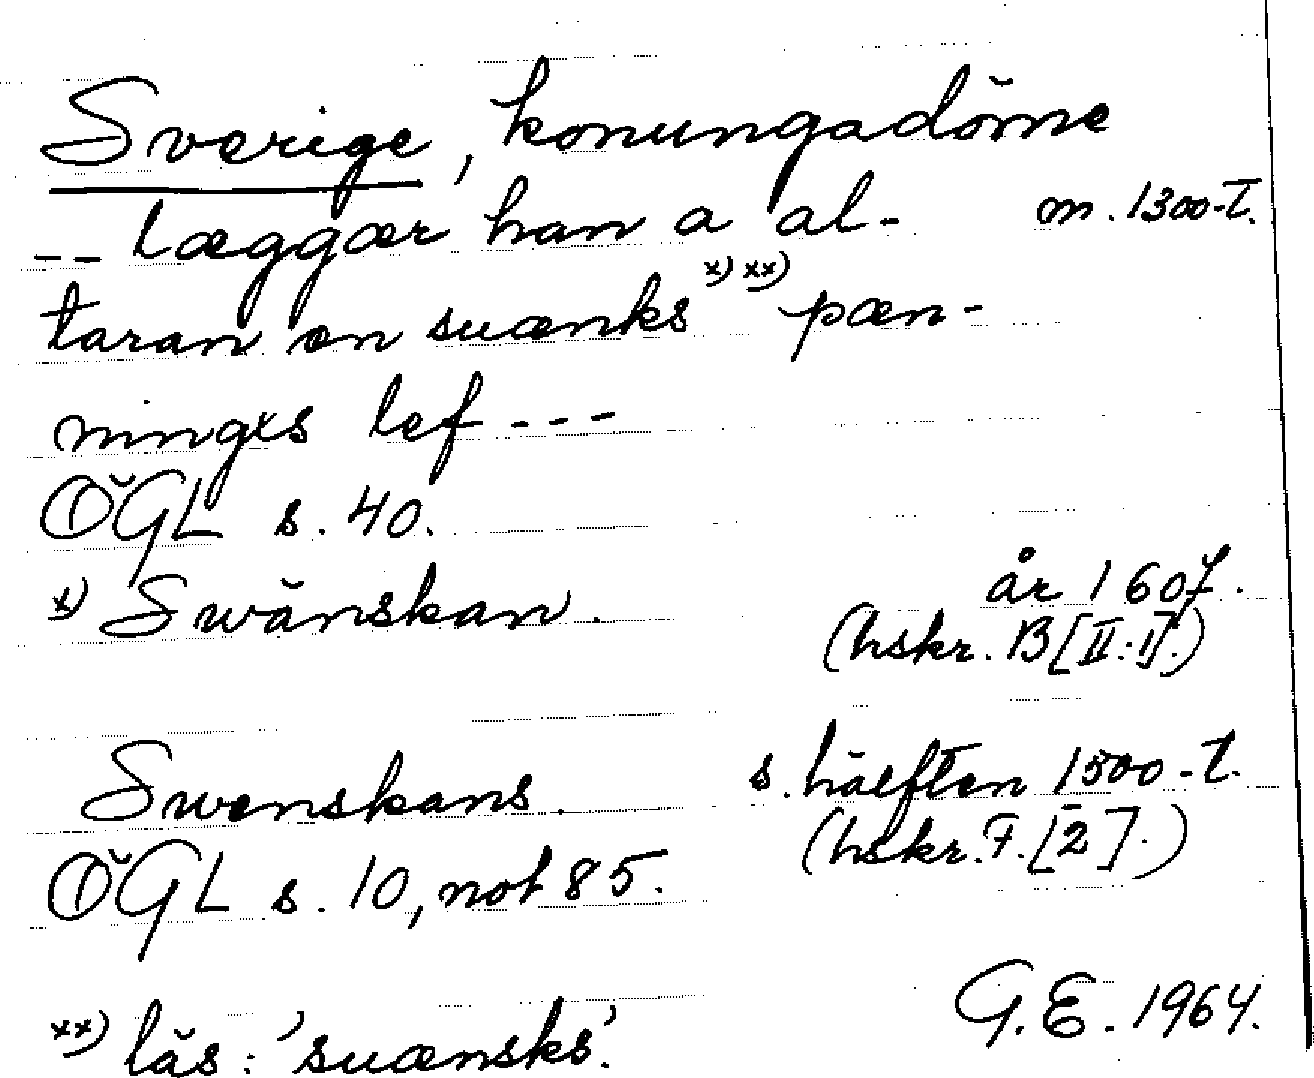 Sverige, konungadöme
-- læggær han a al- m. 1300-t.
taran en suænks x) xx) pæn-
ningxs lef ---
ÖGL s. 40.
x) Swänskan. år 1607.
(hskr. B [II:1].)
Swenskans. s. hälften 1500-t.
(hskr. F. [2].)
ÖGL s. 10, not 85.
G.E. 1964.
xx) läs: 'suænsks'.